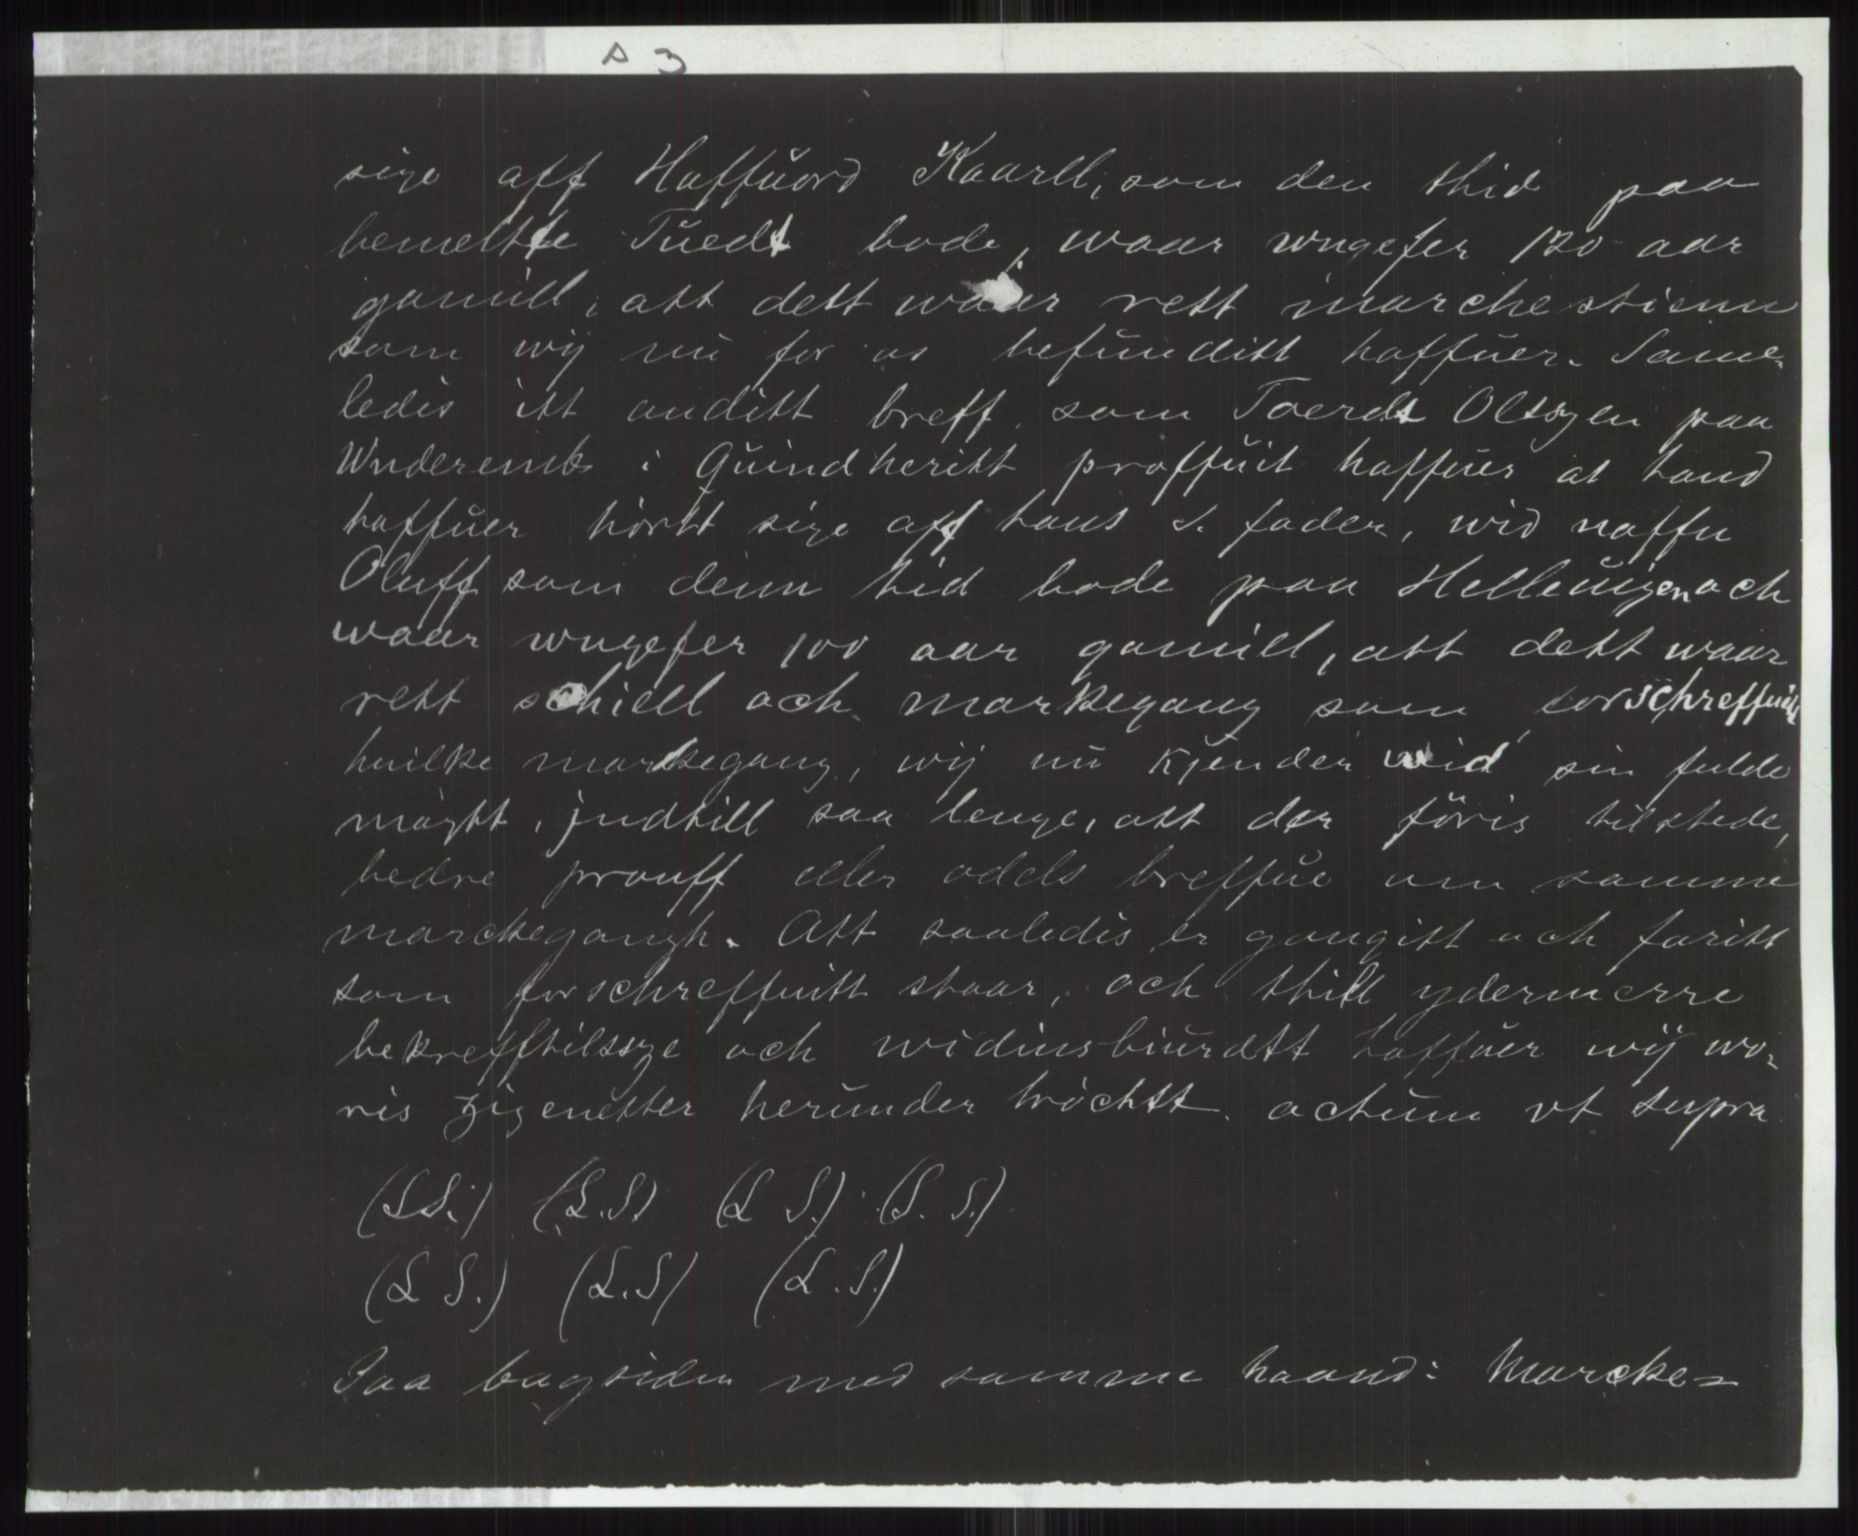 s 3
sige aff Haffuord Kaarll, som den thid paa
bemeltte Tuedt bode, waar wngefer 120 aar
gamill, att dett waar rett marche stienn
som wij nu for os befunditt haffuer. Same-
ledis itt anditt breff, som Toerdt Olszen paa
Wnderenik i Quindheritt proffuit haffuer at hand
haffuer hörtt sige aff hans S. fader, wid naffn
Oluff som denn tid bode paa Helleuigen och
waar wngefer 100 aar gamill, att dett waar
rett schiell och markegang som forschreffuitt
huilke markegang, wij nu kjender wid sin fulde
magtt, jndtill saa lenge, att der föris tilstede,
bedre prouff eller odels breffue om samme
marckegangh. Att saaledis er gangitt och faritt
som forschreffuitt staar, och thill ydermerre
bekrefftilssge och widinsbiurdtt haffuer wij wo-
ris zigenetter herunder tröchtt. actum vt supra
(L.S.) (L.S.) (L S.) (L. S.)
(L S.) (L.S) (L.S.)
Paa bagsiden med samme haand: Marcke-